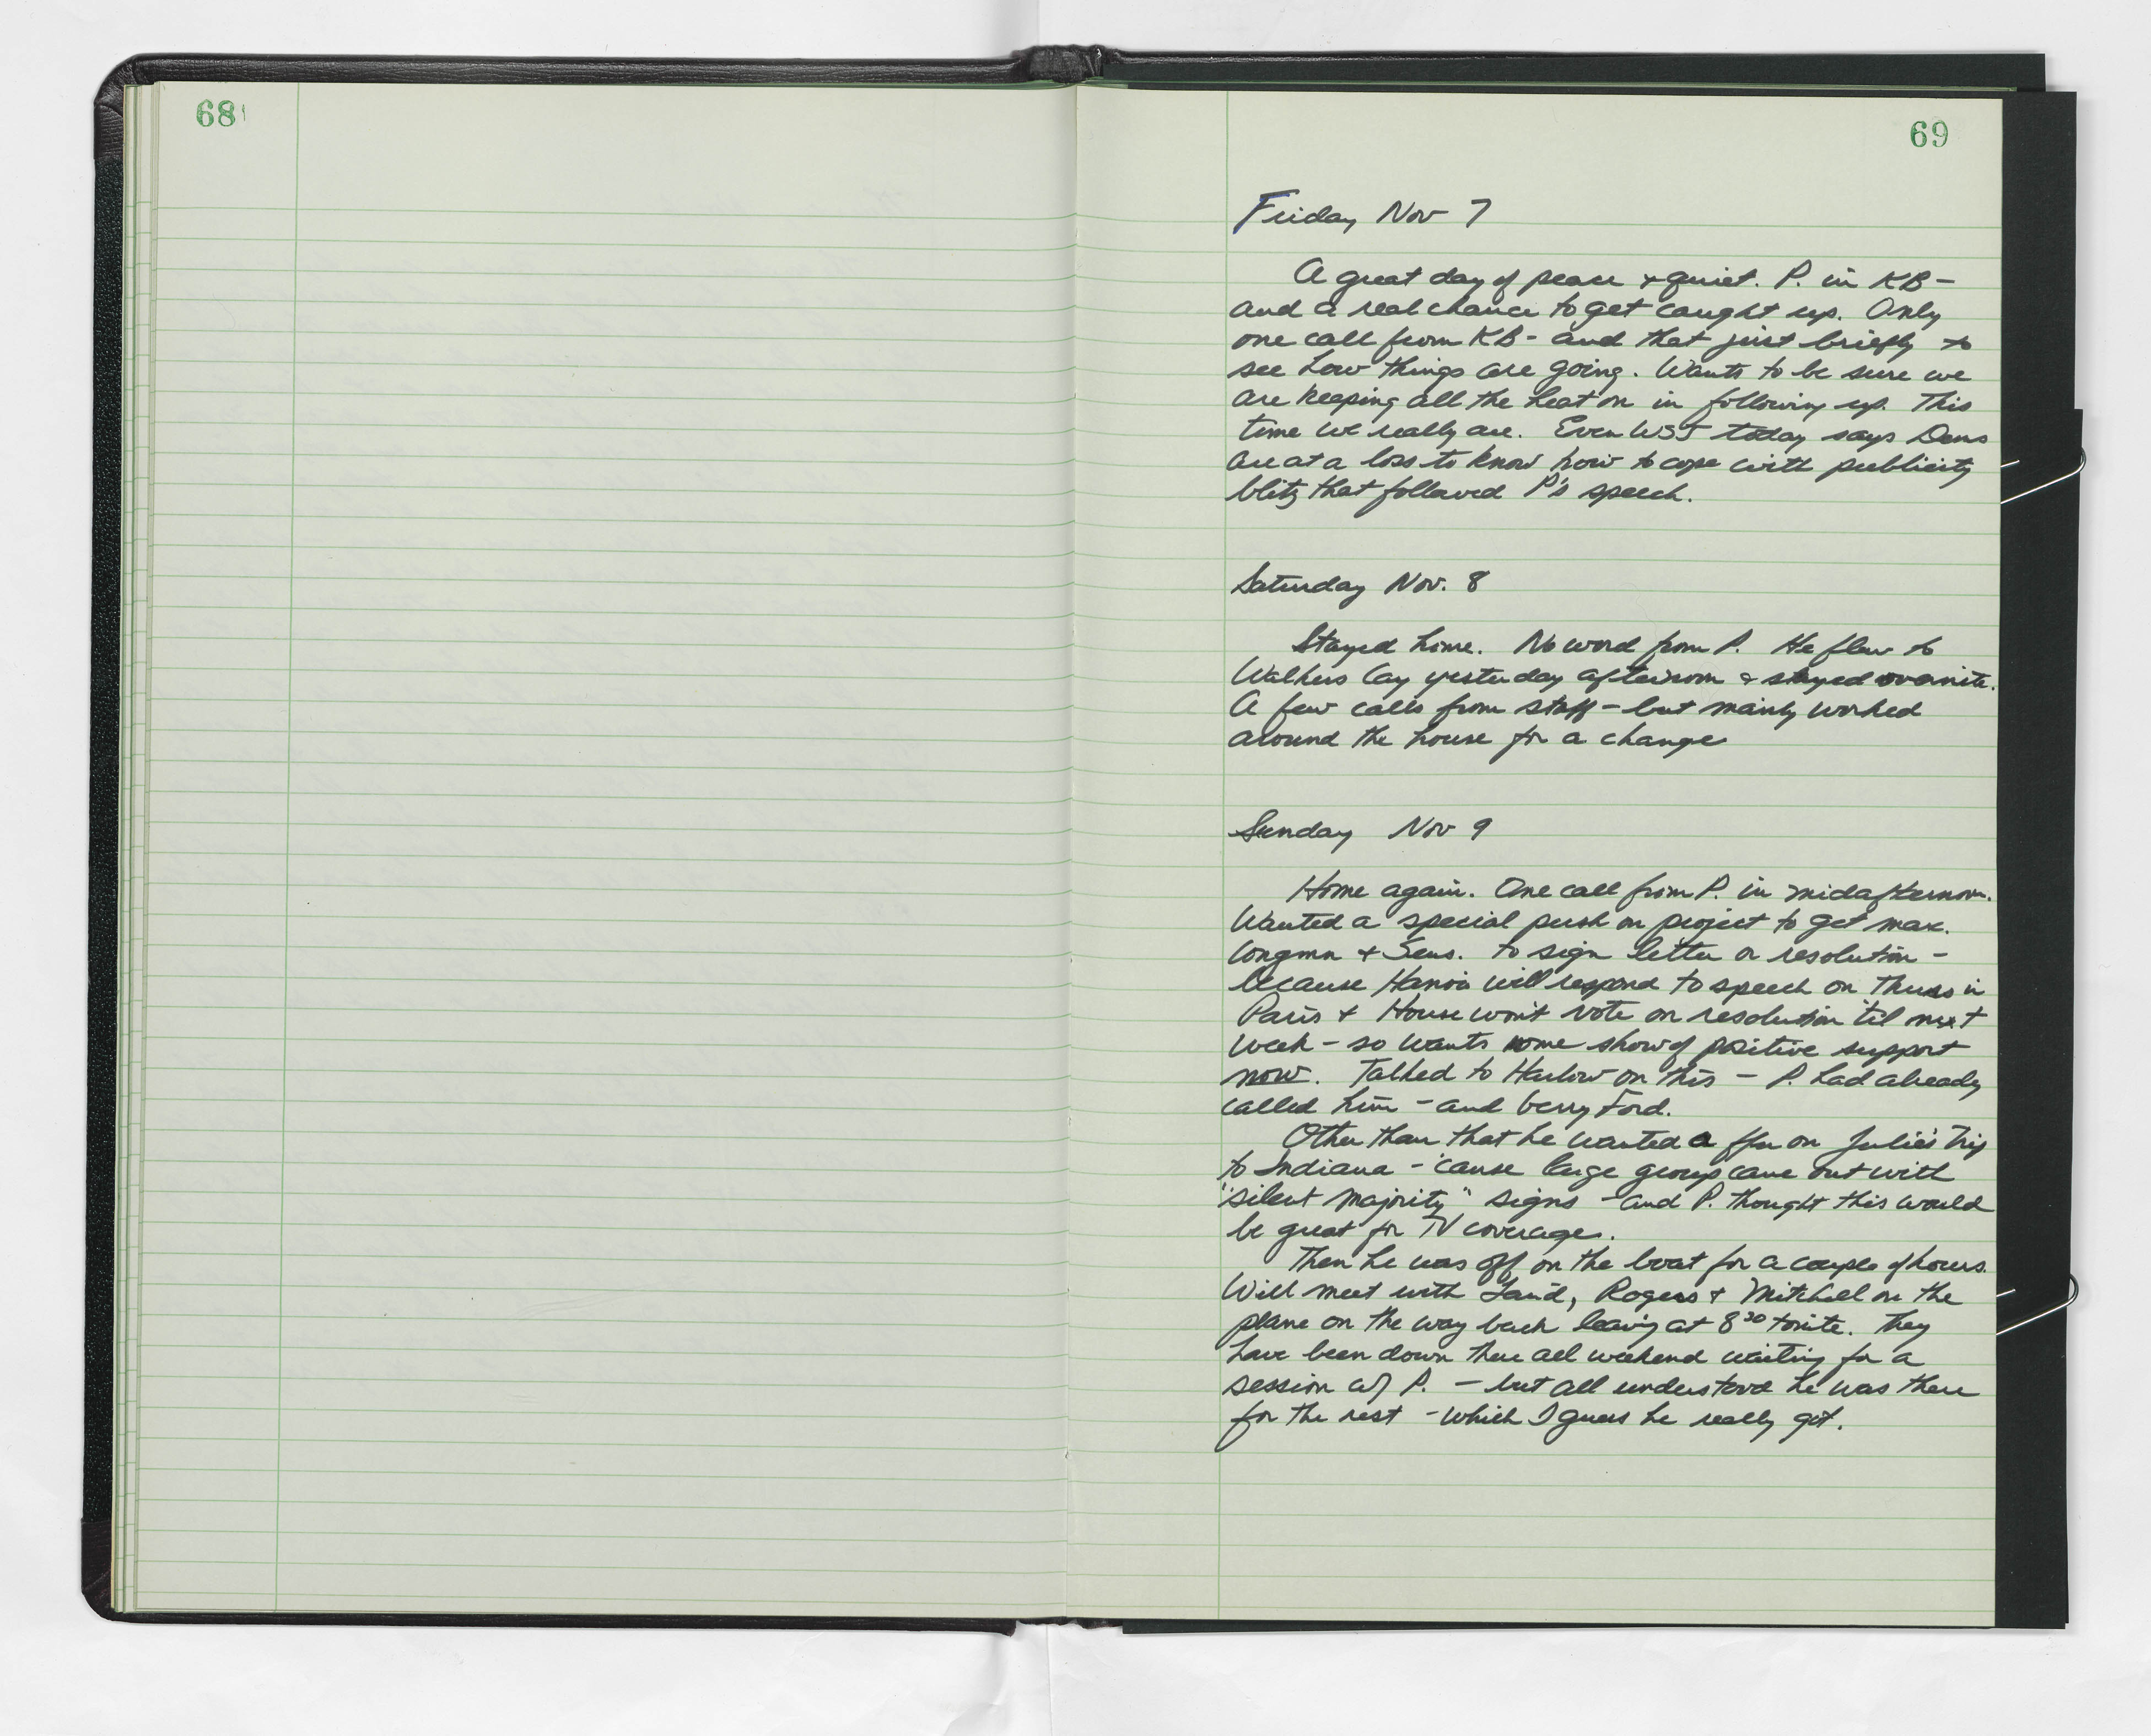 68
69
Friday Nov 7
A great day of peace + quiet. P. in KB -
and a real chance to get caught up. Only
one call from KB - and that just briefly to
see how things are going. Wants to be sure we
are keeping all the heat on in following up. This
time we really are. Even WSJ today says Dems
are at a loss to know how to cope with publicity
blitz that followed P's speech.
Saturday Nov. 8
Stayed home. No word from P. He flew to
Walkers Cay yesterday afternoon & stayed overnite.
A few calls from staff - but mainly worked
around the house for a change
Sunday Nov 9
Home again. One call from P. in midafternoon.
Wanted a special push on project to get max.
Congmn + Sens. to sign letter or resolution -
because Hanoi will respond to speech on Thurs in
Paris + House won't vote on resolution 'til next
week - so wants some show of positive support
now. Talked to Harlow on this - P. had already
called him - and Gerry Ford.
Other than that he wanted a ffu on Julie's trip
to Indiana - 'cause large group came out with
"silent majority" signs - and P. thought this would
be great for TV coverage.
Then he was off on the boat for a couple of hours.
Will meet with Laird, Rogers + Mitchell on the
plane on the way back leaving at 8 30 tonite. They
have been down there all weekend waiting for a
session w/ P. - but all understood he was there
for the rest - which I guess he really got.